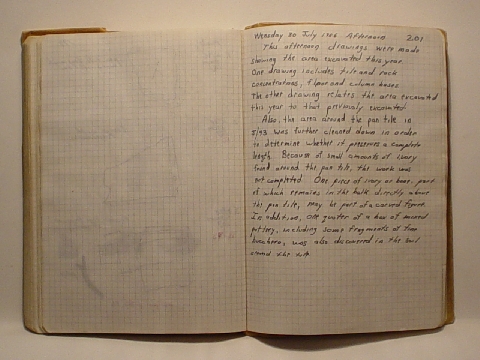 Wensday 30 July 1986 Afternoon 201
This afternoon drawings were made
showing the area excavated this year.
One drawing includes tile and rock
concentrations, floor and column bases
The other drawing relates the area excavated
this year to that previously excavated
Also, the area around the pan tile in
5/93 was further cleaned down in order
to determine whether it preserves a complete
length. Because of small amounts of ivory
found around the pan tile, the work was
not completed. One piece of ivory or bone, part
of which remains in the balk directly above
the pan tile, may be part of a carved figure.
In addition, one quater of a box of mixed
pottery, including some fragments of fine
was also discovered in the soil
around the